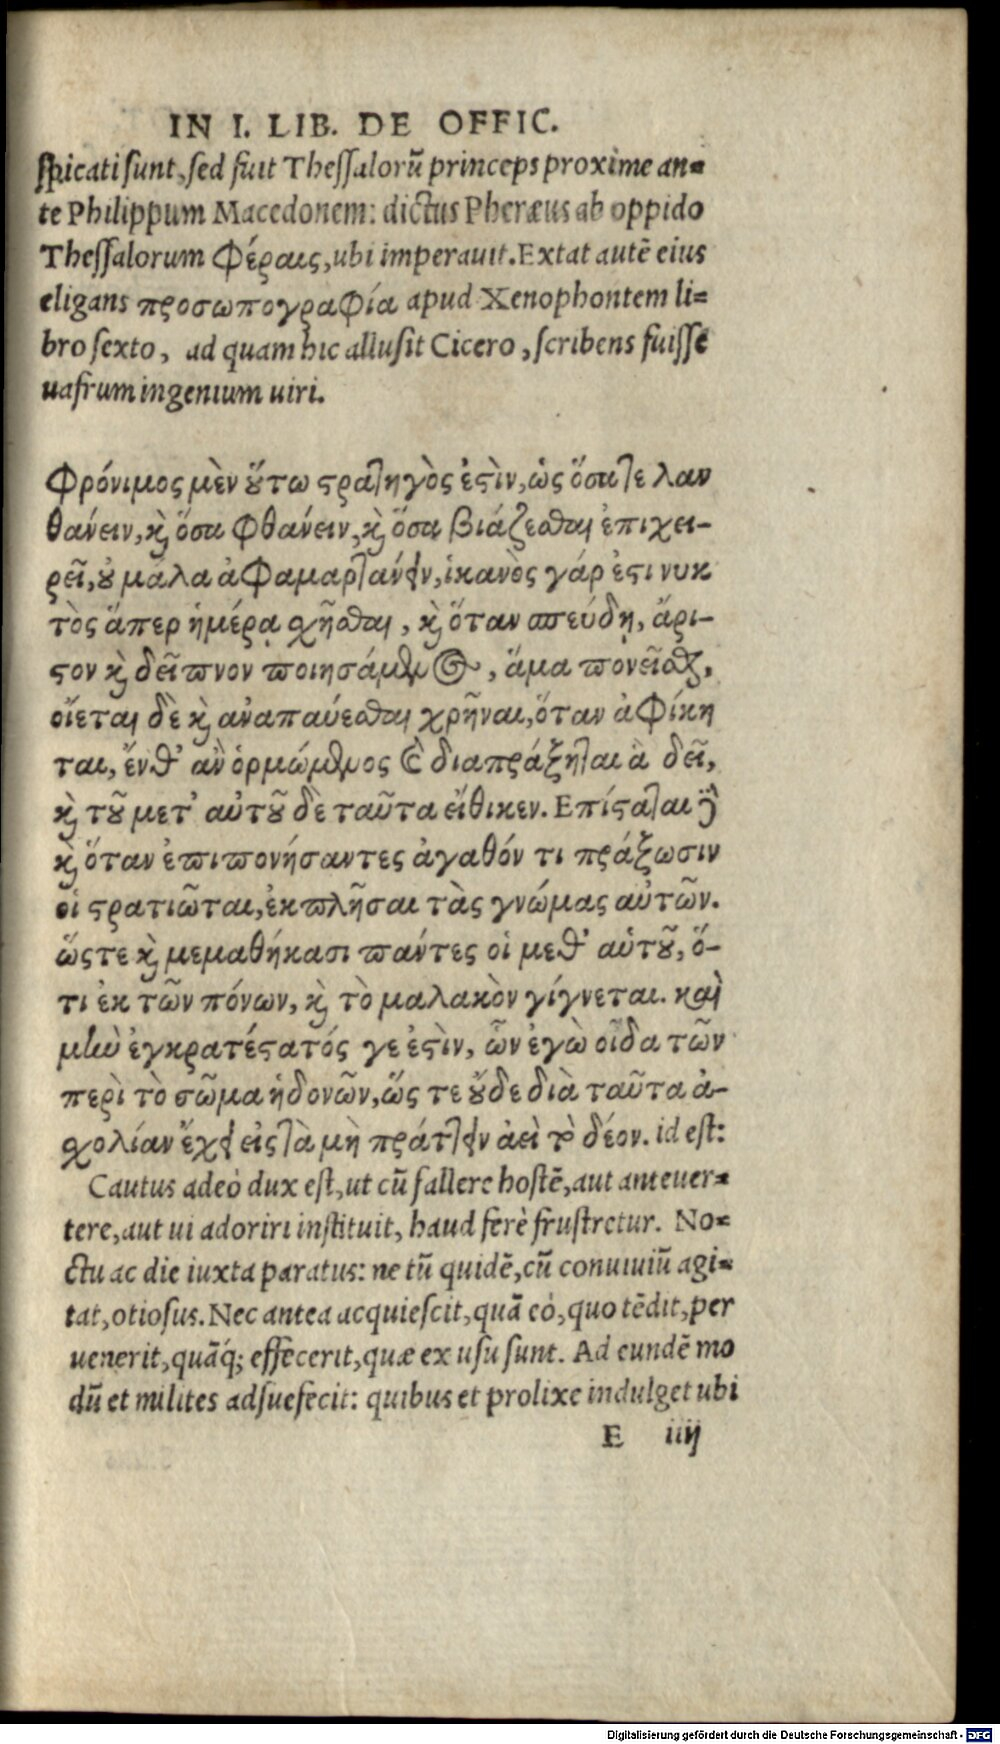 IN I. LIB. DE OFFIC.
spicati sunt, sed fuit Thessalorū princeps proxime an=
te Philippum Macedonem: dictus Pheræus ab oppido
Thessalorum Φέραις, ubi imperauit. Extat autē eius
eligans προσωπογραφία apud Xenophontem li=
bro sexto, ad quam hic allusit Cicero, scribens fuisse
uafrum ingenium uiri.
Φρόνιμος μὲν ὅυτω στρατηγὸς ἐστὶν, ὡς ὅσα τε λαν
θάνειν, καὶ ὅσα φθάνειν, καὶ ὅσα βιάζεσθαι ἐπιχει-
ρεῖ, ου μάλα ἀφαμαρτάνειν, ἱκανὸς γάρ ἐστι νυκ
τὸς ἅπερ ἡμέρᾳ χρῆσθαι, καὶ ὅταν σπεύδῃ, ἄρι-
στον καὶ δεῖπνον ποιησάμενος, ἅμα πονεῖσθαι,
οἴεται δὲ καὶ ἀναπαύεσθαι χρῆναι, ὅταν ἀφίκη
ται, ἔνθ' ἂν ὁρμώμενος καὶ διαπράξηται ἃ δεῖ,
καὶ τοῦ μετ' αὐτοῦ δὲ ταῦτα εἴθικεν. Επίσταται δὲ
καὶ ὅταν ἐπιπονήσαντες ἀγαθόν τι πράξωσιν
οἱ στρατιῶται, ἐκπλῆσαι τὰς γνώμας αὐτῶν.
ὥστε καὶ μεμαθήκασι πάντες οἱ μεθ' αὑτοῦ, ὅ-
τι ἐκ τῶν πόνων, καὶ τὸ μαλακὸν γίγνεται. καὶ
μὴν ἐγκρατέστατός γε ἐστὶν, ὧν ἐγὼ οἶδα τῶν
περὶ τὸ σῶμα ἡδονῶν, ὥς τε ὄυδε διὰ ταῦτα ἀ-
σχολίαν ἔχει εἰς τὰ μὴ πράττειν ἀεὶ τὸ δέον. id est:
Cautus adeò dux est, ut cū fallere hostē, aut anteuer=
tere, aut ui adoriri instituit, haud ferè frustretur. No=
ctu ac die iuxta paratus: ne tū quidē, cū conuiuiū agi=
tat, otiosus. Nec antea acquiescit, quā eò, quo tēdit, per
uenerit, quāq; effecerit, quæ ex usu sunt. Ad eundē mo
dū et milites adsuefecit: quibus et prolixe indulget ubi
E iiij
Digitalisierung gefördert durch die Deutsche Forschungsgemeinschaft - DFG